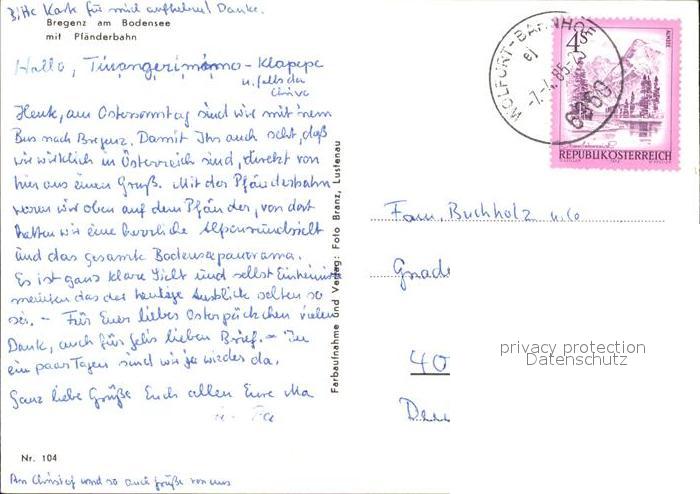 Bitte Karte für mich aufheben! Danke.
Bregenz am Bodensee
mit Pfänderbahn
Hallo,
Heute, am Ostersonntag sind wir mit 'nem
Bus nach Bregenz. Damit Ihr auch seht, daß
wir wirklich in Österreich sind, direkt von
hier aus einen Gruß. Mit der Pfänderbahn
waren wir oben auf dem Pfänder, von dort
hatten wir eine herrliche Alpenrundsicht
und das gesamte Bodenseepanorama.
Es ist ganz klare Sicht und selbst Einheimische
meinten das der heutige Ausblick selten so
sei. - Für Euer liebes Osterpäckchen vielen
Dank, auch für lieben Brief. - In
ein paar Tagen sind wir ja wieder da.
Ganz liebe Grüße Euch allen Eure Ma
u. Pa
Nr. 104
An Christof und so auch grüße von uns
Farbaufnahme und Verlag: Foto Branz, Lustenau
WOLFURT-BAHNHOF
6960
4S
ALMSEE
REPUBLIK ÖSTERREICH
Fam. Buchholz u. Co
Gnade
40
Deu
privacy protection
Datenschutz